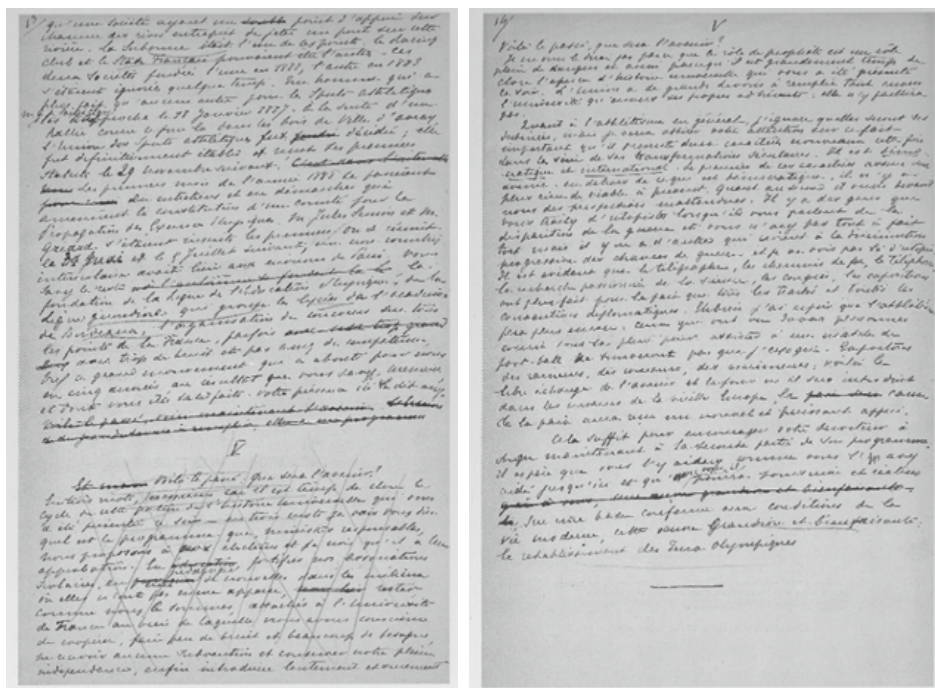 13/ qu'une société ayant un point d'appui sur
chacune des rives entreprit de jeter un pont sur cette
rivière. La Sorbonne était l'un de ces points. Le Racing
Club et le Stade Français pouvaient être l'autre. Ces
deux Sociétés fondées l'une en 1882, l'autre en 1883
s'étaient ignorées quelque temps. Un homme qui a
plus fait qu'aucun autre pour les Sports athlétiques
les rapprocha le 18 Janvier 1887. À la suite d'un
Rallie couru ce jour là dans les bois de Ville d'Avray
l'Union des Sports athlétiques fut décidée ; elle
fut définitivement établie et reçut ses premiers
Statuts le 29 novembre suivant.
Les premiers mois de l'année 1888 se passèrent
en entretiens et en démarches qui
amenèrent la constitution d'un comité pour la
Propagation des Exercices Physiques. M. Jules Simon et M.
Gréard s'étaient inscrits les premiers. On se réunit
le et le 5 Juillet suivant, un 
interscolaire avait lieu aux environs de Paris. Vous
savez le reste la
fondation de la Ligue de l'Éducation Physique, de la
Ligue girondine qui groupe les Lycées de l'académie
de Bordeaux, l'organisation de concours sur tous
les points de la France, parfois
avec trop de bruit et pas assez de 
Bref ce grand mouvement qui a abouti pour nous
en cinq années au résultat que vous savez, Messieurs
et dont vous êtes satisfaits. Votre présence ici le dit assez
V
Voilà le passé. Que sera l'avenir ?
En trois mots, car il est temps de clore le
cycle de cette portion de l'histoire universelle qui vous
a été présentée ce soir — en trois mots je vais vous dire
quel est le programme que, ministres responsables,
nous proposons à nos électeurs et je sais qu'il a leur
approbation : fortifier nos associations
scolaires, en de nouvelles dans les milieux
où elles n'ont pas encore apparu, rester
comme nous le sommes, attachés à l'Université
de France au bien de laquelle nous avons conscience
de coopérer, faire peu de bruit et beaucoup de besogne,
ne recevoir aucune Subvention et conserver notre pleine
indépendance, enfin introduire lentement et sûrement
14/ V
Voilà le passé, que sera l'avenir ?
Je ne vous le dirai pas parce que le rôle de prophète est un rôle
plein de dangers et aussi parce qu'il est grandement temps de
clore l'aperçu d'histoire universelle qui vous a été présenté
ce soir. L'Union a de grands devoirs à remplir tant envers
l'Université qu'envers ses propres adhérents : elle n'y faillira
pas.
Quant à l'athlétisme en général, j'ignore quelles seront ses
destinées, mais je veux attirer votre attention sur ce fait
important qu'il présente deux caractères nouveaux cette fois
dans la série de ses transformations séculaires. Il est démo-
cratique et international. Le premier de ces caractères assure son
avenir : en dehors de ce qui est démocratique, il n'y a
plus rien de viable à présent. Quant au second il ouvre devant
nous des perspectives inattendues. Il y a des gens que
vous traitez d'utopistes lorsqu'ils vous parlent de la
disparition de la guerre et vous n'avez pas tout à fait
tort mais il y en a d'autres qui croient à la diminution
progressive des chances de guerre et je ne vois pas là d'utopie
Il est évident que le télégraphe, les chemins de fer, le téléphone,
la recherche passionnée de la Science, les congrès, les expositions
ont plus fait pour la paix que tous les traités et toutes les
conventions diplomatiques. Eh bien j'ai espoir que l'athlétisme
fera plus encore. Ceux qui ont vu 30.000 personnes
courir sous la pluie pour assister à un match de
foot-ball ne trouveront pas que j'exagère. Exportons
des rameurs, des coureurs, des escrimeurs ; voilà le
libre échange de l'avenir et le jour où il sera introduit
dans les mœurs de la vieille Europe la cause
de la paix aura reçu un nouvel et puissant appui.
Cela suffit pour encourager votre serviteur à
songer maintenant à la seconde partie de son programme.
il espère que vous l'y aiderez comme vous l'avez
aidé jusqu'ici et qu'avec vous il pourra poursuivre et réaliser
sur une base conforme aux conditions de la
vie moderne, cette œuvre grandiose et bienfaisante :
le rétablissement des Jeux Olympiques